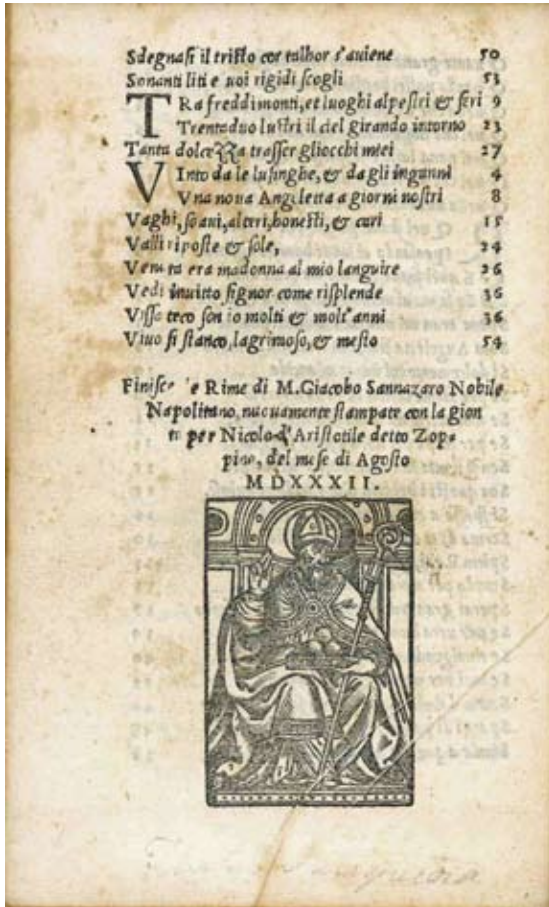 Sdegnasi il tristo cor talhor s'auiene 50
Sonanti liti e uoi rigidi scogli 53
TRa freddi monti, et luoghi alpestri & feri 9
Trentaduo lustri il ciel girando intorno 23
Tanta dolcezza trasser gliocchi miei 27
VInto da le lusinghe, & da gli inganni 4
Vna noua Angiletta a giorni nostri 8
Vaghi, soaui, alteri, honesti, & cari 15
Valli riposte & sole, 24
Venuta era madonna al mio languire 26
Vedi inuitto signor come risplende 36
Vissa teco son io molti & molt'anni 36
Viuo fi stanco, lagrimoso, & mesto 54
Finisce Rime di M. Giacobo Sannazaro Nobile
Napolitano, nuouamente stampate con la gion
ta per Nicolo d'Aristotile detto Zop=
pino, del mese di Agosto
MDXXXII.